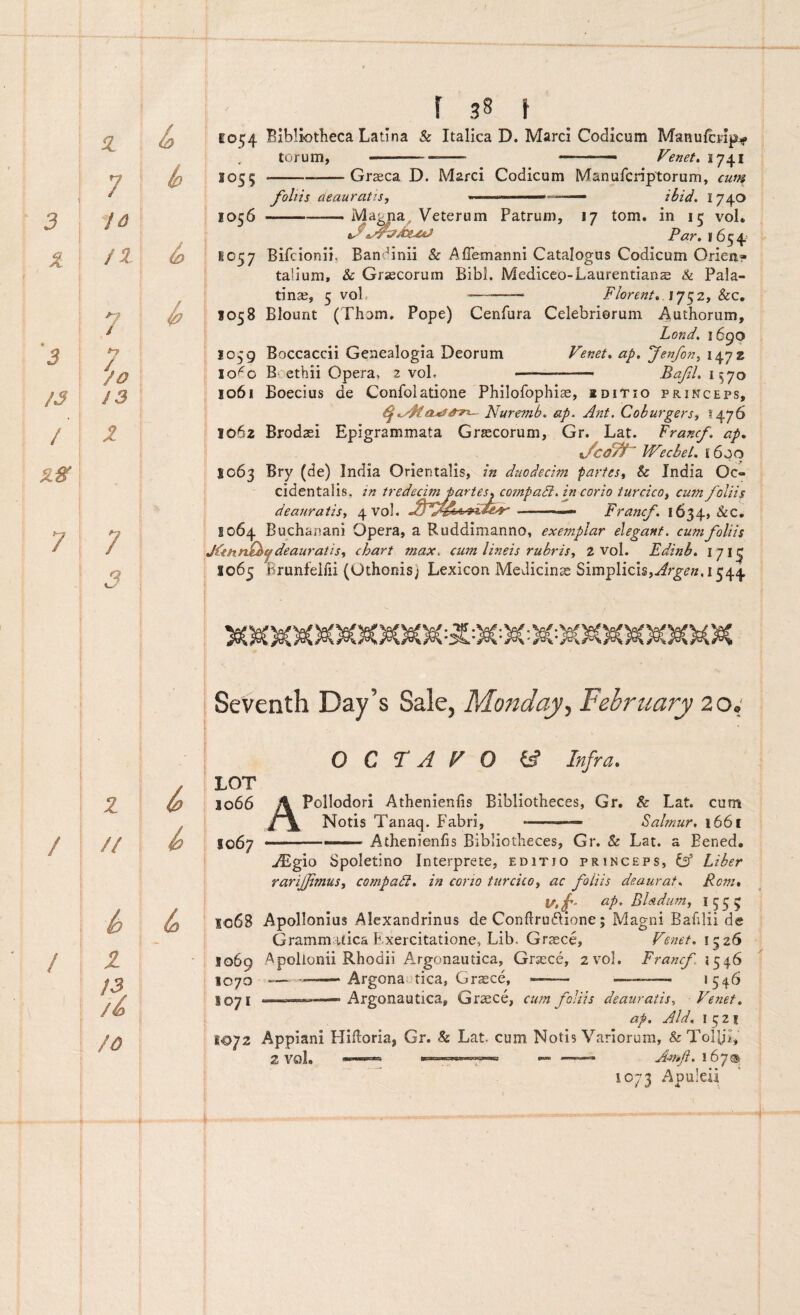 [ 38 ]
2 6 1054 Bibliotheca Latina & Italica D. Marci Codicum Manuſcrip-
torum, Venet. 1741
7 6 1055 Græca D. Marci Codicum Manuſcriptorum, cum
foliis deauratis, ibid. 1740
3 10 1056 Magna Veterum Patrum, 17 tom. in 15 vol.
Par. 1654
2 12 6 1057 Biſcionii, Bandinii & Aſſemanni Catalogus Codicum Orien-
talium, & Græcorum Bibl. Mediceo-Laurentianæ & Pala-
tinæ, 5 vol. Florent. 1752, &c.
7 6 1058 Blount (Thom. Pope) Cenſura Celebriorum Authorum,
Lond. 1690
3 7 1059 Boccaccii Genealogia Deorum Venet. ap. Jenſon, 1472
10 1060 Boethii Opera, 2 vol. Baſil. 1570
13 13 1061 Boecius de Conſolatione Philoſophiæ, EDITIO PRINCEPS,
Nuremb. ap. Ant. Coburgers, 1476
1 2 1062 Brodæi Epigrammata Græcorum, Gr. Lat. Francf. ap.
Wechel. 1600
28 1063 Bry (de) India Orientalis, in duodecim partes, & India Oc-
cidentalis, in tredecim partes, compact. in corio turcico, cum foliis
deauratis, 4 vol. Francf. 1634, &c.
7 7 1064 Buchanani Opera, a Ruddimanno, exemplar elegant. cum foliis
deauratis, chart max. cum lineis rubris, 2 vol. Edinb. 1715
3 1065 Brunfelſii (Othonis) Lexicon Medicinæ Simplicis, Argen. 1544
Seventh Day's Sale, Monday, February 20.
OCTAVO & Infra.
LOT
2 6 1066 APollodori Athenienſis Bibliotheces, Gr. & Lat. cum
Notis Tanaq. Fabri, Salmur. 1661
1 11 6 1067 Athenienſis Bibliotheces, Gr. & Lat. a Bened.
Ægio Spoletino Interprete, EDITIO PRINCEPS, & Liber
rariſſimus, compact. in corio turcico, ac foliis deaurat. Rom.
ap. Bladum, 1555
6 6 1068 Apollonius Alexandrinus de Conſtructione; Magni Baſilii de
Grammatica Exercitatione, Lib. Græcè, Venet. 1526
1 2 1069 Apollonii Rhodii Argonautica, Græcè, 2 vol. Francf. 1546
13 1070 Argonautica, Græcè, 1546
16 1071 Argonautica, Græcè, cum foliis deauratis, Venet.
ap. Ald. 1521
10 1072 Appiani Hiſtoria, Gr. & Lat. cum Notis Variorum, & Tollii,
2 vol. Amſt. 1670
1073 Apuleii